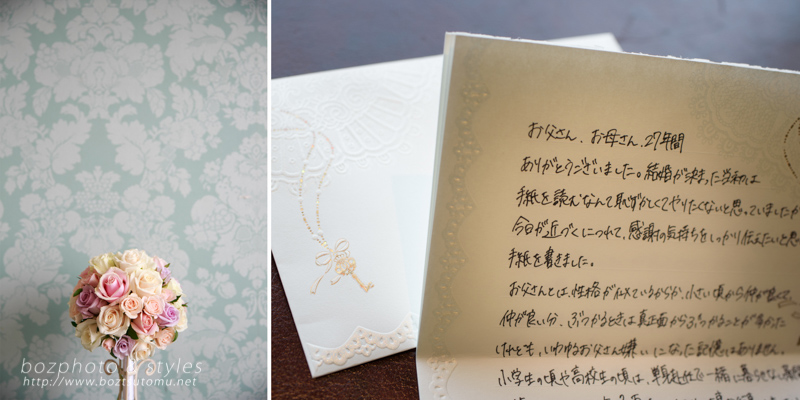 bozphoto & styles
http://www.boztsutomu.net
お父さん、お母さん、27年間
ありがとうございました。結婚が決まった当初は
手紙を読むなんて恥ずかしくてやりたくないと思っていましたが
今日が近づくにつれて、感謝の気持ちをしっかり伝えたいと思
手紙を書きました。
お父さんとは、性格が似ているからか、小さい頃から仲が良くて
仲が良い分、ぶつかるときは真正面からぶつかることが多かった
けれども、いわゆるお父さん嫌いになった記憶はありません。
小学生の頃や高校生の頃は、単身赴任で一緒に暮らせない